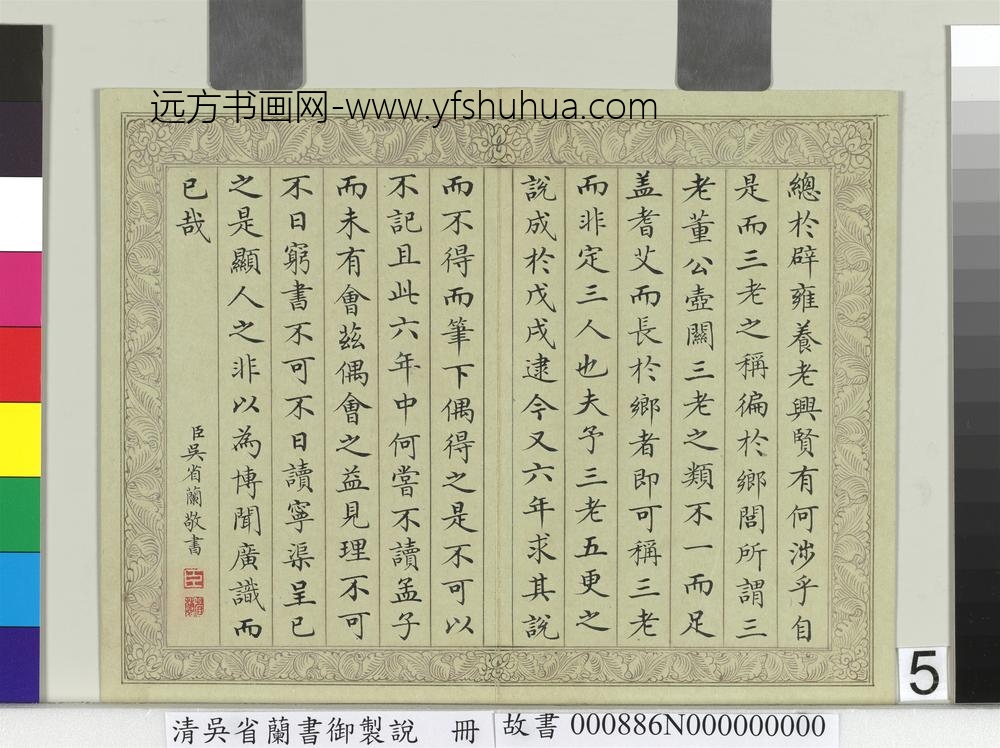 远方书画网-www.yfshuhua.com
總於辟雍養老興賢有何涉乎自
是而三老之稱徧於鄉閭所謂三
老董公壺關三老之類不一而足
盖耆艾而長於鄉者即可稱三老
而非定三人也夫予三老五更之
說成於戊戌逮今又六年求其說
而不得而筆下偶得之是不可以
不記且此六年中何嘗不讀孟子
而未有會茲偶會之益見理不可
不日窮書不可不日讀寧渠呈已
之是顯人之非以為博聞廣識而
已哉
臣吳省蘭敬書
5
清吳省蘭書御製說 冊
故書 000886N000000000